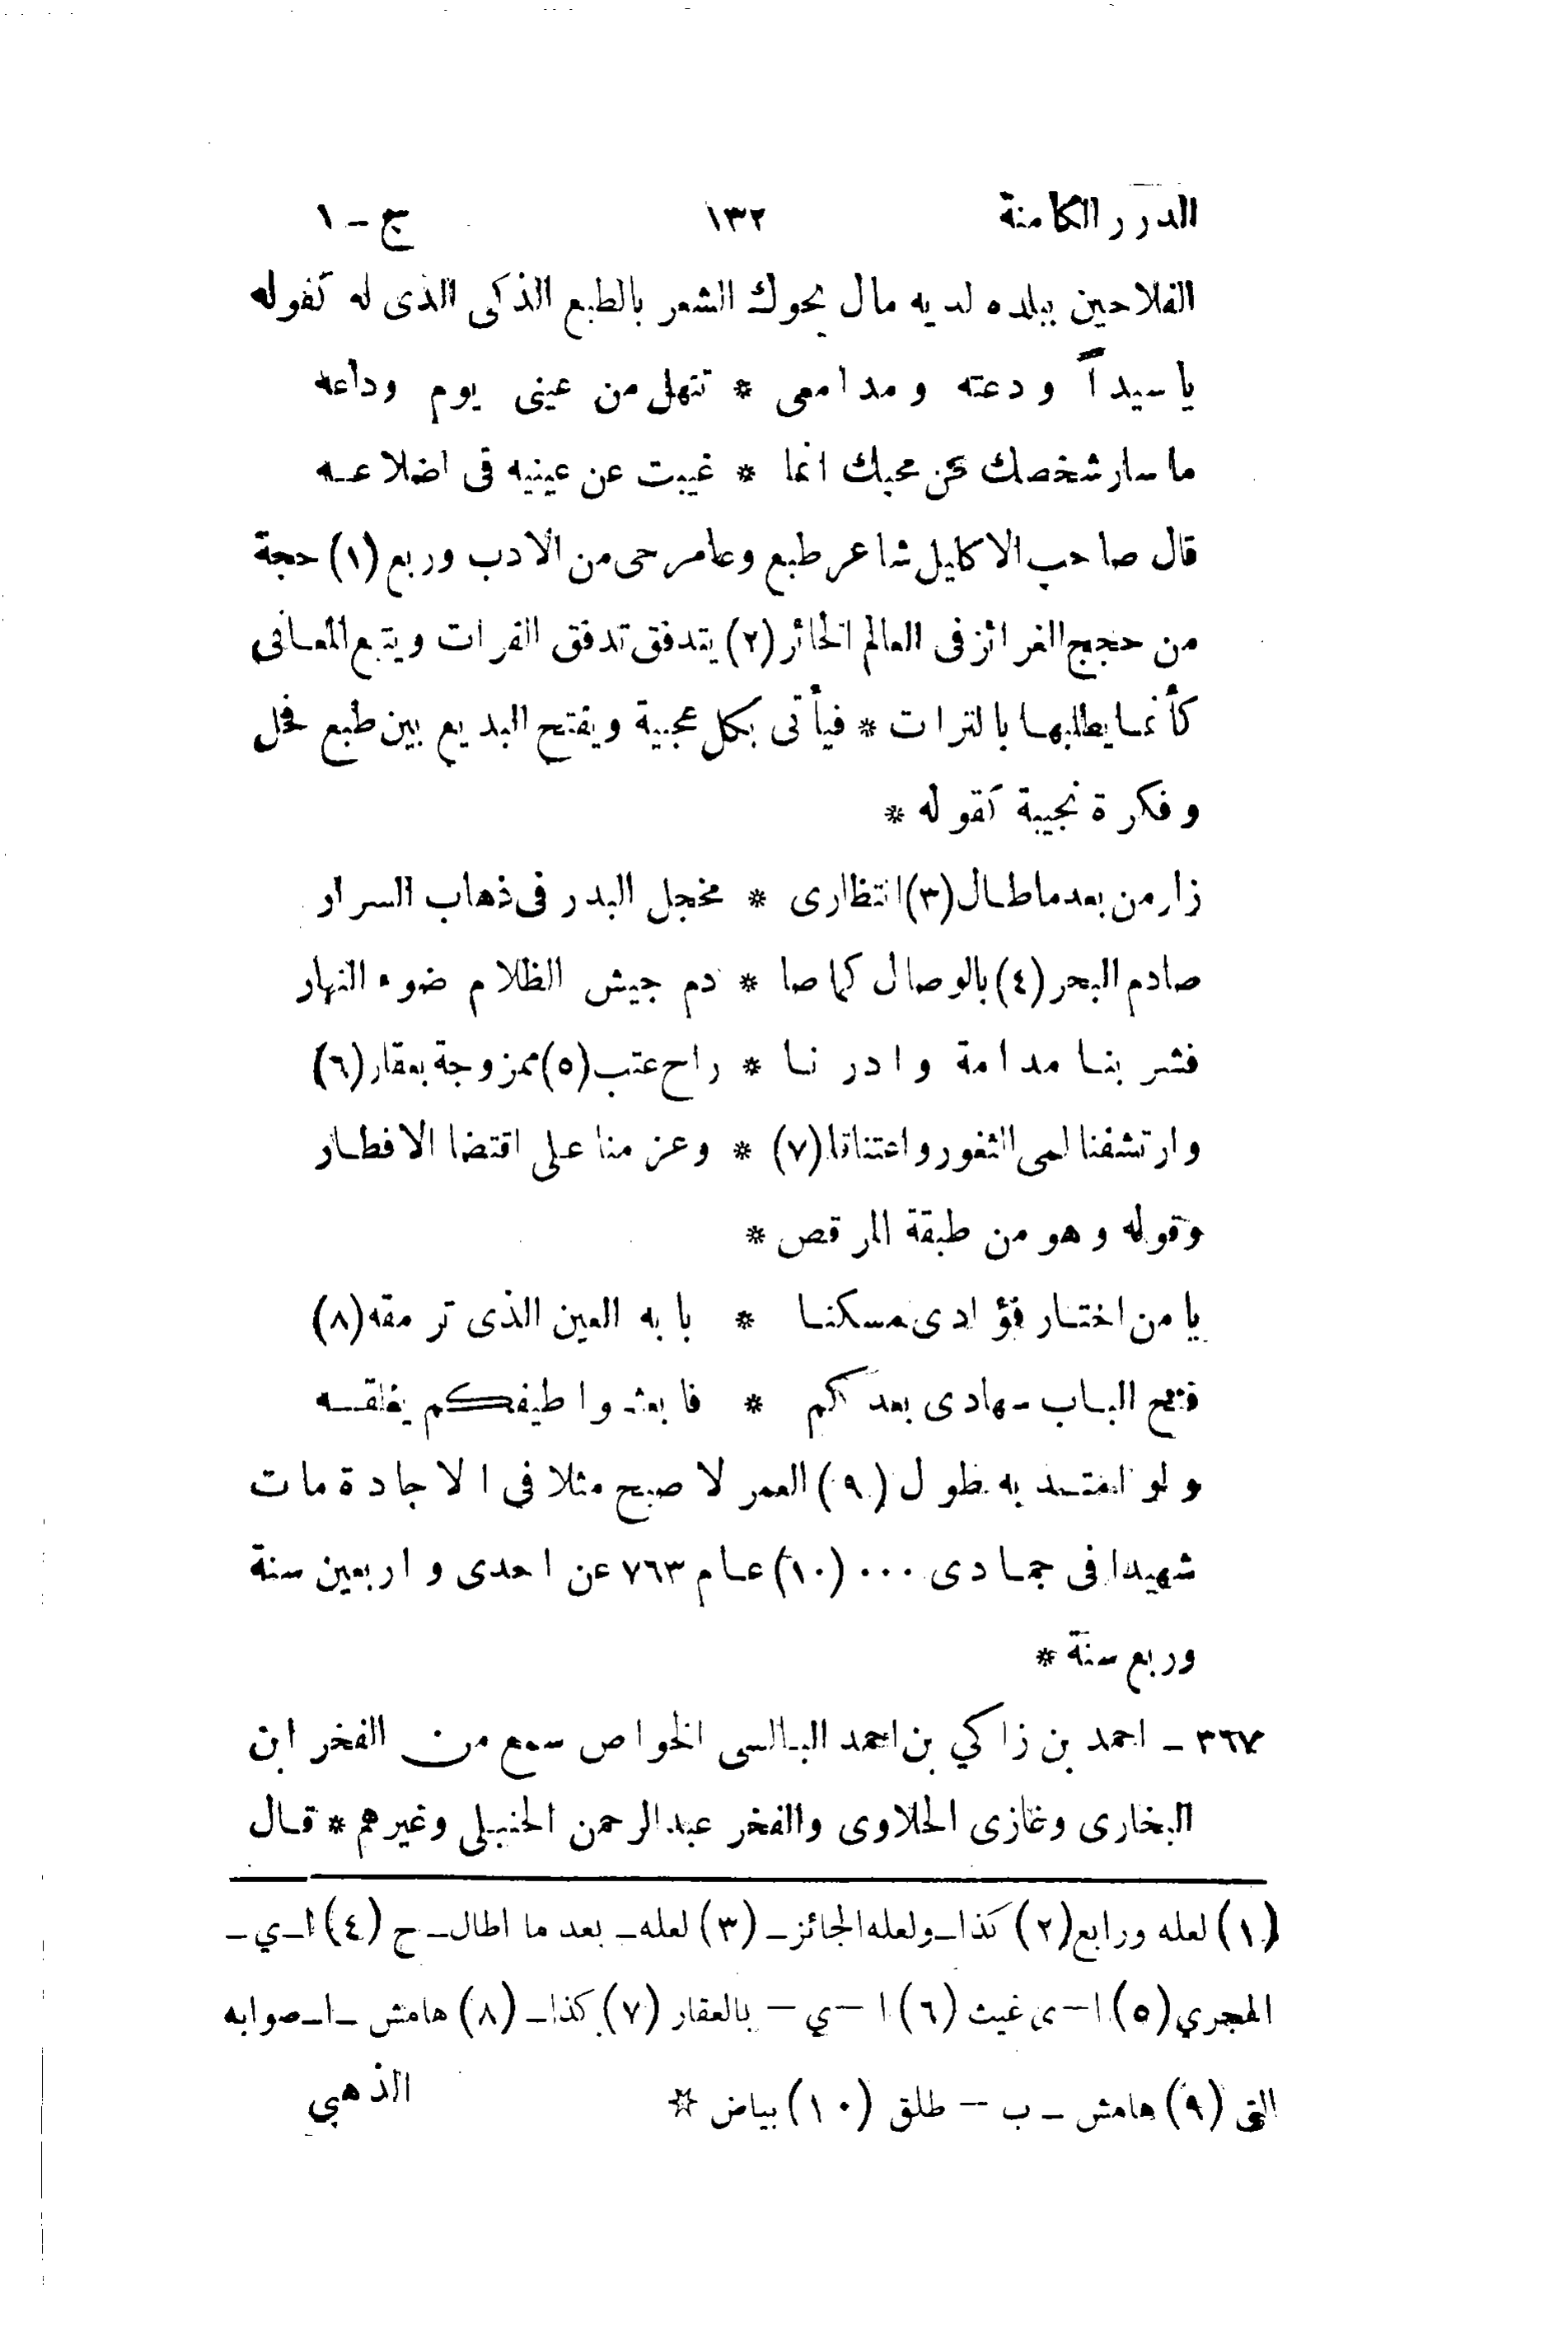 الدرر الكامنة ١٣٢ ج - ١
الفلاحين ببلده لديه مال يحوك الشعر بالطبع الذكى الذى له كقوله
يا سيداً ودعته ومدامعى * تنهل من عينى يوم وداعه
ما سار شخصك عن محبك انما * غيبت عن عينيه فى اضلاعه
قال صاحب الاكليل شاعر طبع وعامر حى من الادب وربع (١) حجة
من حجج الغرائز فى العالم الحائر (٢) يتدفق تدفق الفرات ويتبع المعانى
كأنما يطلبها بالترات * فيأتى بكل عجيبة ويفتح البديع بين طبع فحل
وفكرة نجيبة كقوله *
زار من بعد ما طال (٣) انتظارى * مخجل البدر فى ذهاب السرار
صادم البحر (٤) بالوصال كما صا * دم جيش الظلام ضوء النهار
فشربنا مدامة وادرنا * راح عتب (٥) ممزوجة بعقار (٦)
وارتشفنا لمى الثغور واعتناقا (٧) * وعزمنا على اقتضا الافطار
وقوله وهو من طبقة المرقص *
يا من اختار فؤادى مسكنا * بابه العين الذى ترمقه (٨)
فتح الباب سهادى بعدكم * فابعثوا طيفكم يغلقه
ولو امتد به طول (٩) العمر لاصبح مثلا فى الاجادة مات
شهيدا فى جمادى ... (١٠) عام ٧٦٣ عن احدى واربعين سنة
وربع سنة *
٣٦٧ - احمد بن زاكي بن احمد البالسى الخواص سمع من الفخر ابن
البخارى وغازى الحلاوى والفخر عبد الرحمن الحنبلى وغيرهم * قال
(١) لعله ورابع (٢) كذا - ولعله الجائز - (٣) لعله - بعد ما اطال - ح (٤) ا - ي -
الهجري (٥) ا - ى غيث (٦) ا - ي - بالعقار (٧) كذا - (٨) هامش - ا - صوابه
التى (٩) هامش - ب - طلق (١٠) بياض *
الذهبي